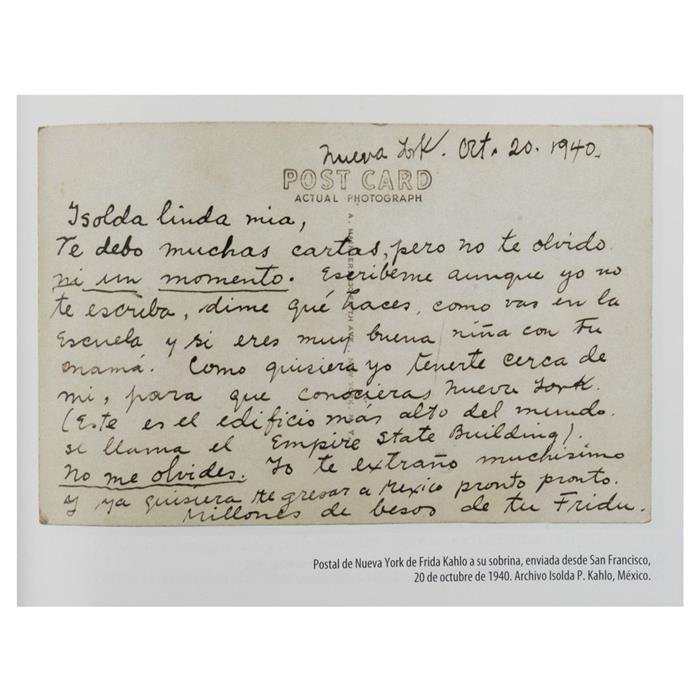 Nueva York. Oct. 20. 1940.
POST CARD
ACTUAL PHOTOGRAPH
Isolda linda mia,
Te debo muchas cartas, pero no te olvido
ni un momento. Escribeme aunque yo no
te escriba, dime qué haces, como vas en la
Escuela y si eres muy buena niña con tu
mamá. Como quisiera yo tenerte cerca de
mi, para que conocieras Nueva York.
(Este es el edificio más alto del mundo.
se llama el Empire State Building).
No me olvides. Yo te extraño muchisimo
y ya quisiera regresar a Mexico pronto pronto.
Millones de besos de tu Fridu.
Postal de Nueva York de Frida Kahlo a su sobrina, enviada desde San Francisco,
20 de octubre de 1940. Archivo Isolda P. Kahlo, México.